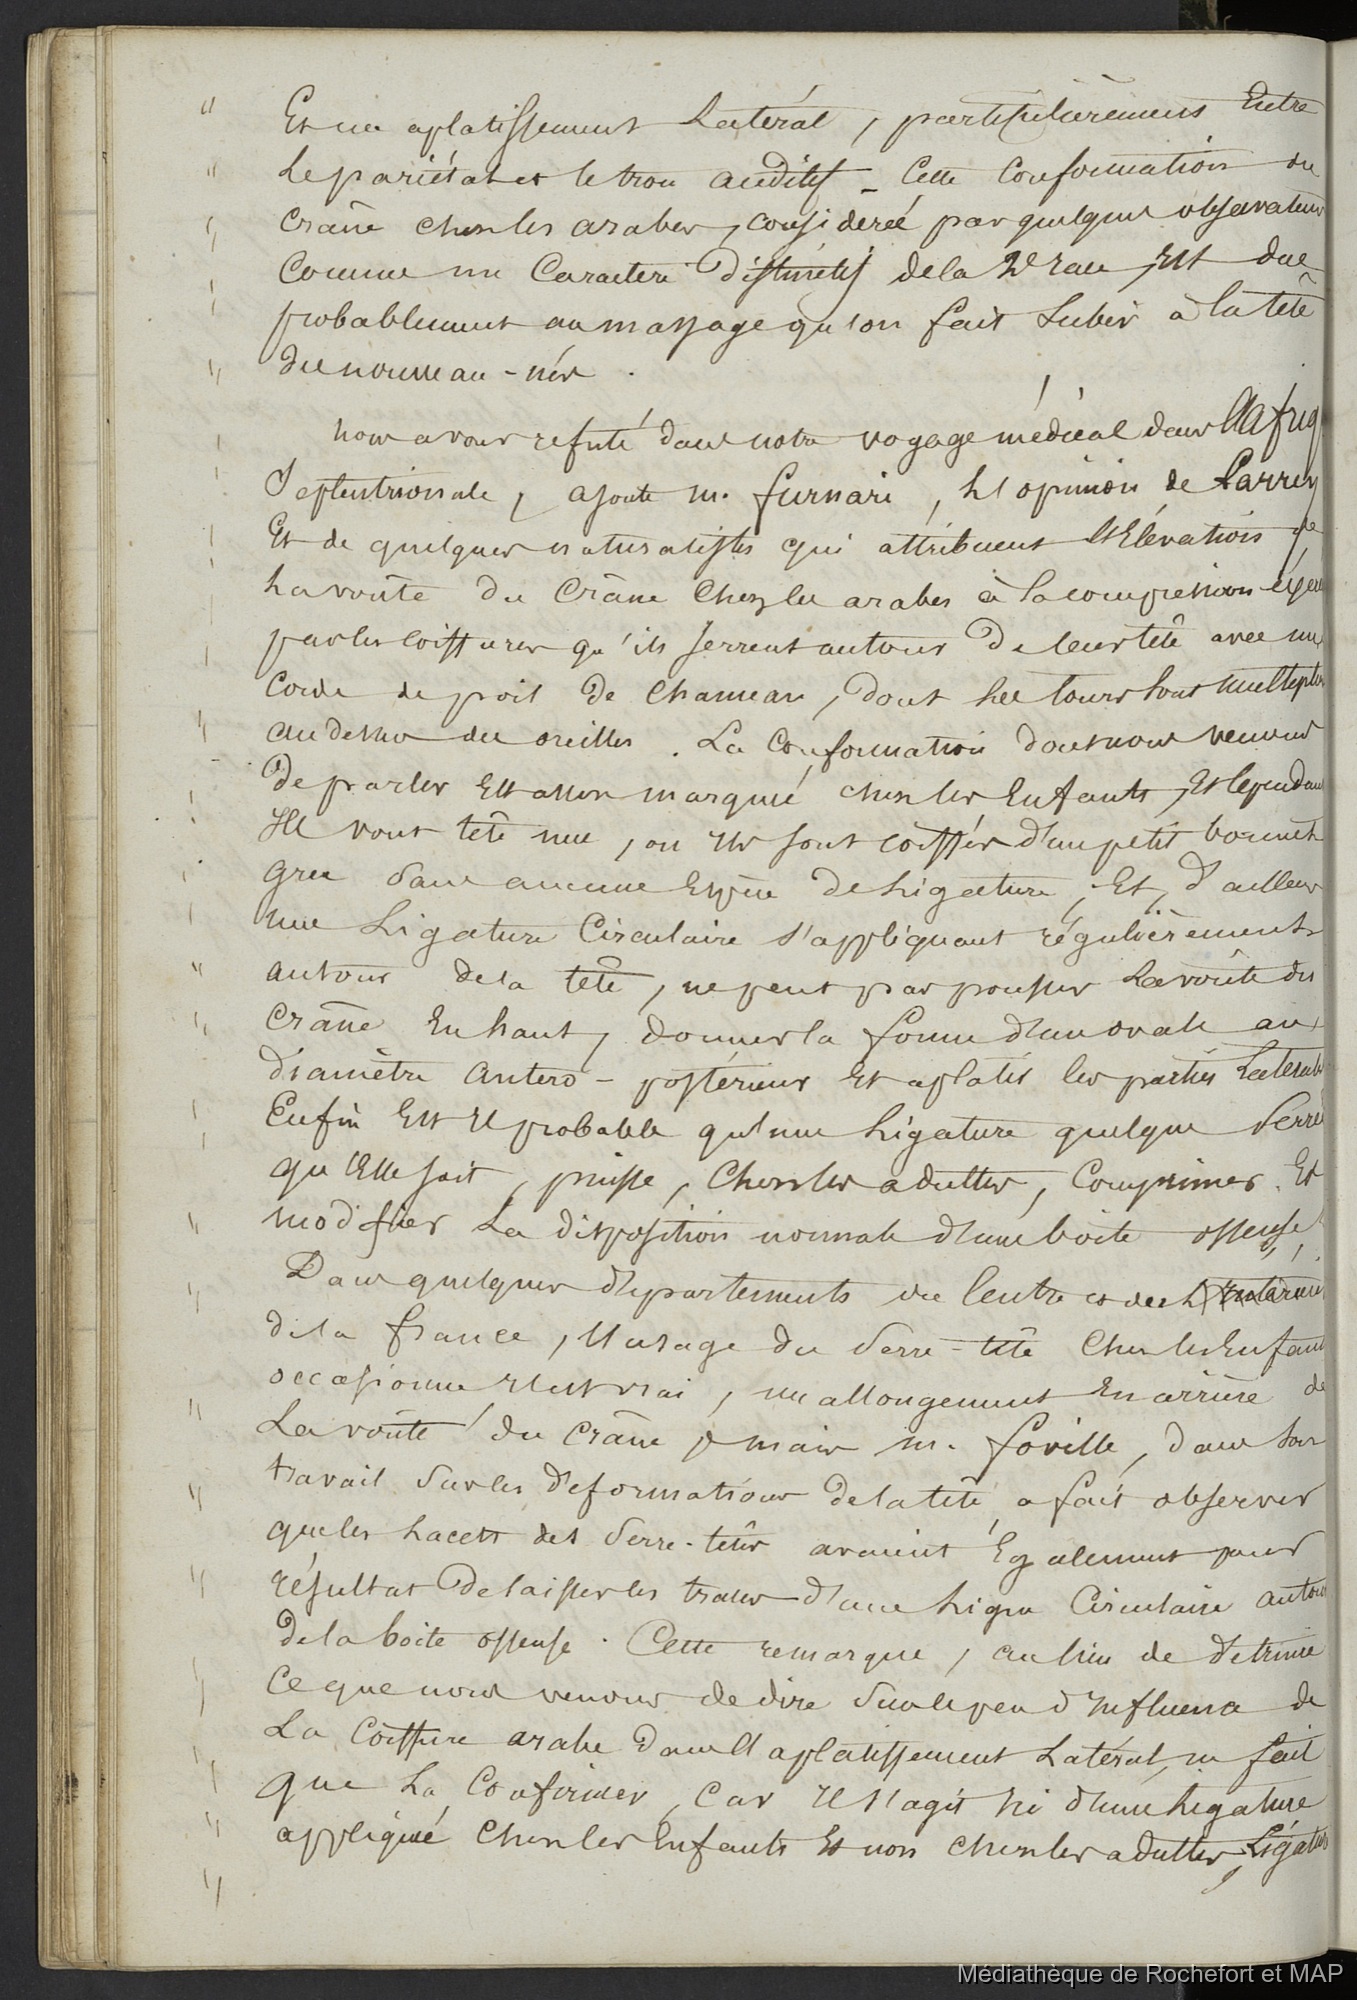 Et un aplatissement Latéral, particulièrement Entre
le pariétal et le trou auditif _ Cette Conformation du
crâne chez les arabes, considereé par quelques observateurs
Comme un Caractere distinctif de la race, Est due
probablement au massage qu'on fait Subir à la tête
du nouveau-nés.
nous avons refuté dans notre voyage médical dans l'Afriq
Septentrionale, ajoute M. furnari, l'opinion de Larrey
Et de quelques naturalistes qui attribuent l'Elévation de
la voûte du Crâne Chez les arabes à la compression
par les coiffures qu'ils serrent autour De leur tête avec une
Corde de poil De Chameau, dont les tours sont multipliés
au dessus des oreilles. La Conformation dont nous venons
De parler Est assez marqué chez les Enfants, Et Cependant
Ils vont tête nue, ou Ils sont coiffés d'un petit bonnet
grec Sans aucune Espèce De Ligature; Et, d'ailleurs
une Ligature Circulaire s'appliquant régulièrement
autour de la tête, ne peut pas pousser La voûte du
Crâne En haut, donner la forme d'un ovale au
diamètre antero-postérieur Et aplatir les parties Laterales
Enfin Est Il probable qu'une Ligature quelque Serré
qu'Elle soit, puisse, Chez les adultes, Comprimer Et
modifier La disposition normale d'une boite osseuse,
Dans quelques départements du Centre et de
de la france, l'usage du Serre-tête Chez les Enfants
occasionne Il est vrai, un allongement En arrière de
La voûte du Crâne, mais M. foville, dans Son
travail Sur les Déformations De la tête, a fait observer
que les Lacets des Serre-têtes avaient Egalement pour
résultat De laisser les traces d'une Ligne Circulaire autour
De la boite osseuse. Cette remarque, au lieu de détruire
Ce que nous venons de dire Sur le peu d'Influence de
La Coiffure arabe Dans l'aplatissement Latéral, ne fait
que La Confirmer, Car Il s'agit Ici d'une Ligature
appliqué Chez les Enfants Et non chez les adultes, Ligature
Médiathèque de Rochefort et MAP